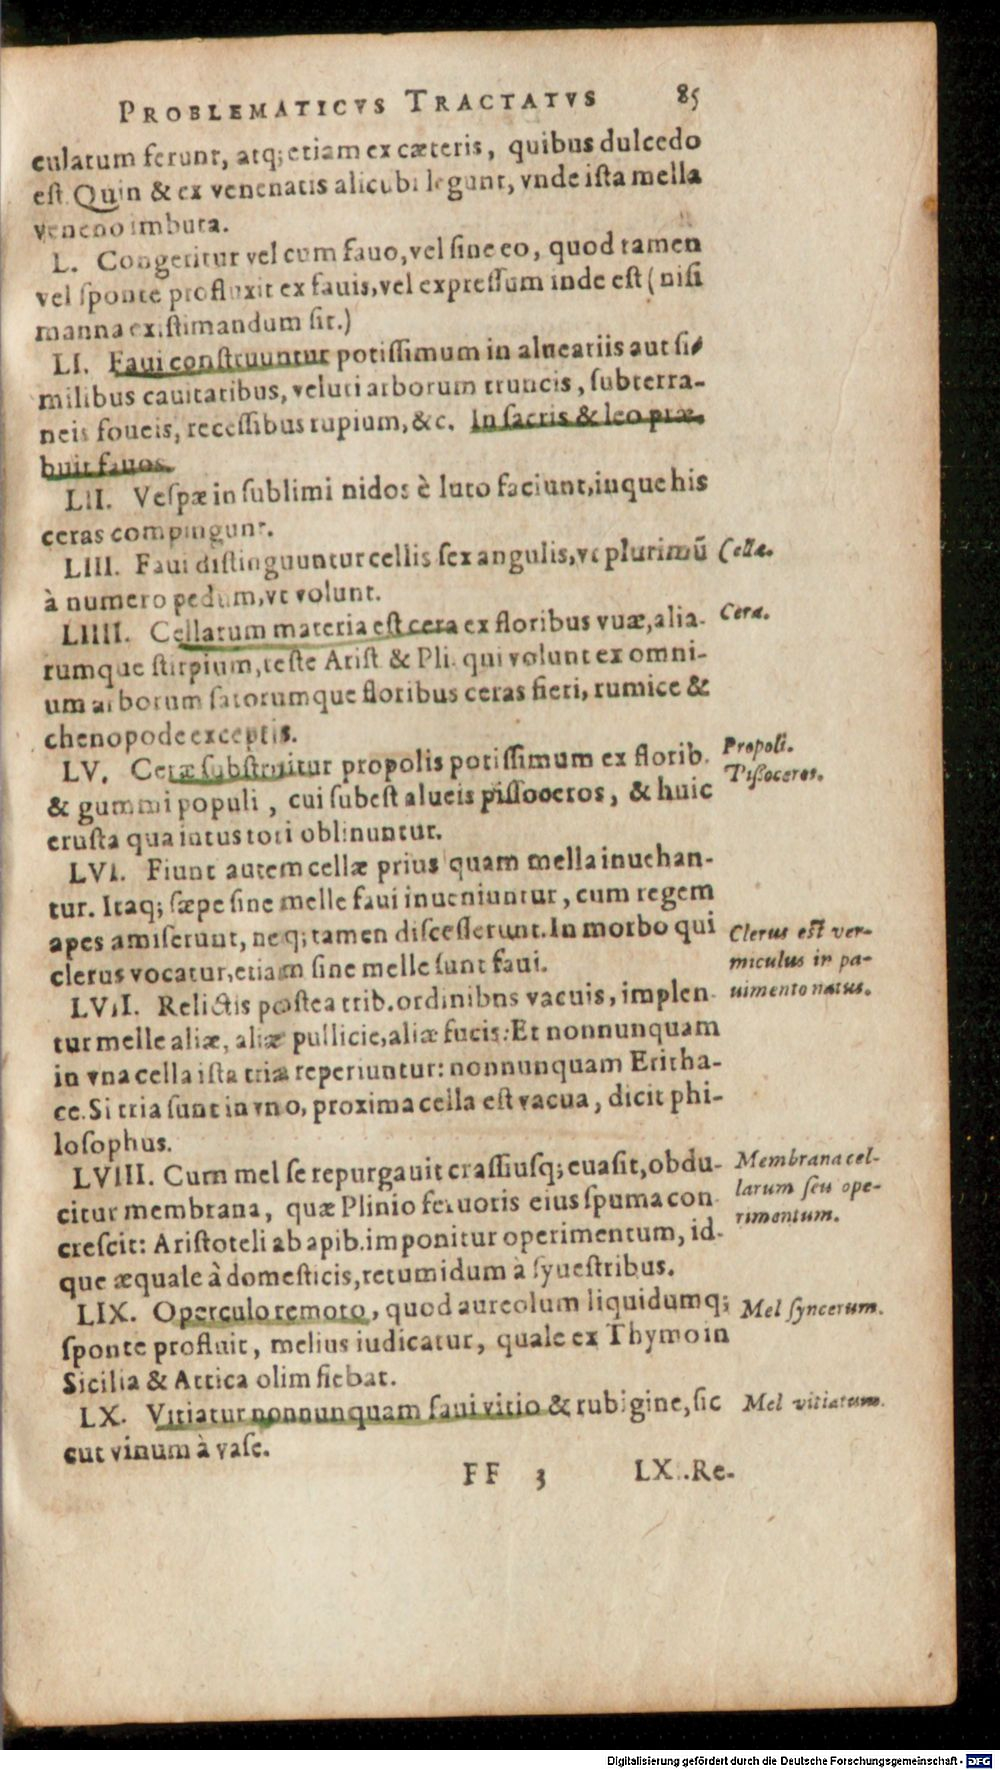 PROBLEMATICVS TRACTATVS 85
culatum ferunt, atq; etiam ex cæteris, quibus dulcedo
est. Quin & ex venenatis alicubi legunt, vnde ista mella
veneno imbuta.
L. Congeritur vel cum fauo, vel sine eo, quod tamen
vel sponte profluxit ex fauis, vel expressum inde est (nisi
manna existimandum sit.)
LI. Faui construuntur potissimum in alueariis aut si-
milibus cauitatibus, veluti arborum truncis, subterra-
neis foueis, recessibus rupium, &c. In sacris & leo præ-
buit fauos.
LII. Vespæ in sublimi nidos è luto faciunt, inque his
ceras compingunt.
LIII. Faui distinguuntur cellis sexangulis, vt plurimũ
Cella.
à numero pedum, vt volunt.
LIIII. Cellarum materia est cera ex floribus vuæ, alia-
Cera.
rumque stirpium, teste Arist. & Pli. qui volunt ex omni-
um arborum satorumque floribus ceras fieri, rumice &
chenopode exceptis.
LV. Ceræ substruitur propolis potissimum ex florib.
Propoli.
& gummi populi, cui subest alueis pissoceros, & huic
Pißoceros.
crusta qua intus toti oblinuntur.
LVI. Fiunt autem cellæ prius quam mella inuehan-
tur. Itaq; sæpe sine melle faui inueniuntur, cum regem
apes amiserunt, neq; tamen discesserunt. In morbo qui
Clerus est ver-
clerus vocatur, etiam sine melle sunt faui.
miculus in pa-
uimento natus.
LVII. Relictis postea trib. ordinibus vacuis, implen-
tur melle aliæ, aliæ pullicie, aliæ fucis: Et nonnunquam
in vna cella ista tria reperiuntur: nonnunquam Eritha-
ce. Si tria sunt in vno, proxima cella est vacua, dicit phi-
losophus.
LVIII. Cum mel se repurgauit crassiusq; euasit, obdu-
Membrana cel-
citur membrana, quæ Plinio feruoris eius spuma con
larum seu ope-
crescit: Aristoteli ab apib. imponitur operimentum, id-
rimentum.
que æquale à domesticis, retumidum à syuestribus.
LIX. Operculo remoto, quod aureolum liquidumq;
Mel syncerum.
sponte profluit, melius iudicatur, quale ex Thymo in
Sicilia & Attica olim fiebat.
LX. Vitiatur nonnunquam faui vitio & rubigine, sic
Mel vitiatum.
cut vinum à vase.
FF 3 LX .Re-
Digitalisierung gefördert durch die Deutsche Forschungsgemeinschaft - DFG